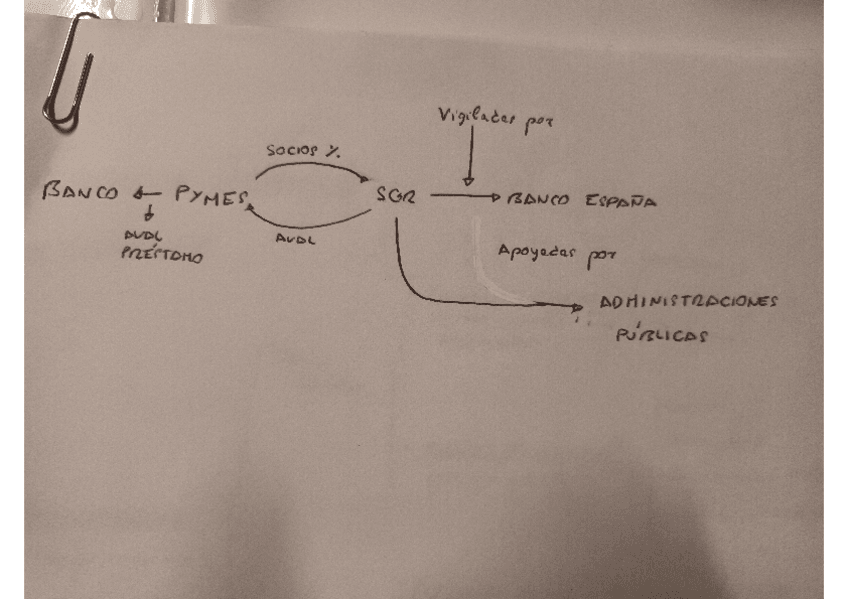 Vigiladas por
SOCIOS %
BANCO ← PYMES
SGR
BANCO ESPAÑA
AVAL
PRÉSTAMO
AVAL
Apoyadas por
ADMINISTRACIONES
PÚBLICAS